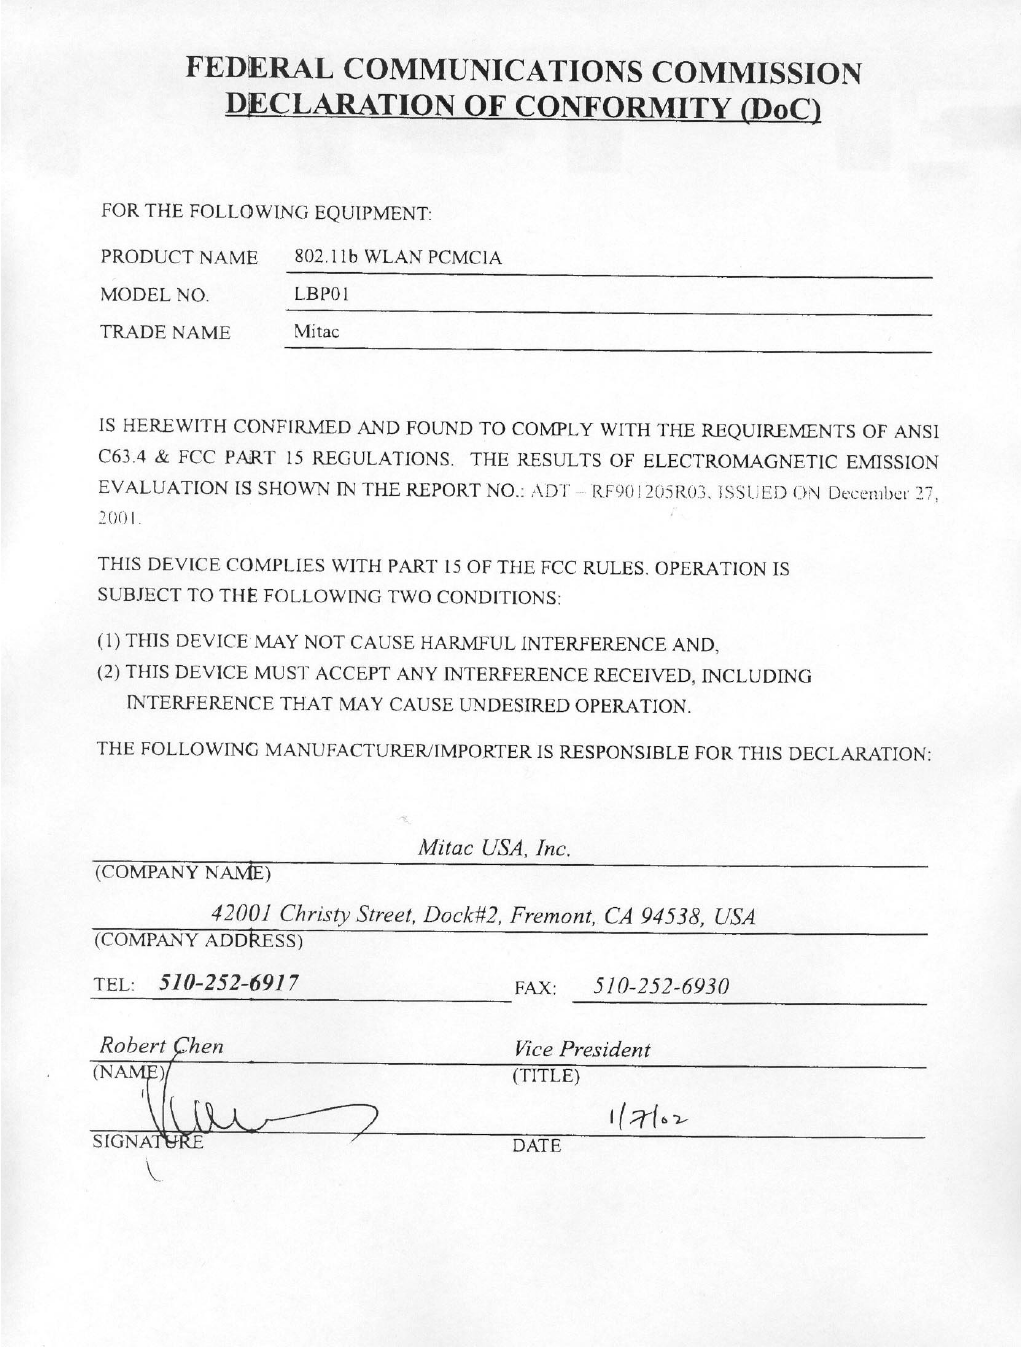 FEDERAL COMMUNICATIONS COMMISSION
DECLARATION OF CONFORMITY (DoC)
FOR THE FOLLOWING EQUIPMENT:
PRODUCT NAME 802.11b WLAN PCMCIA
MODEL NO. LBP01
TRADE NAME Mitac
IS HEREWITH CONFIRMED AND FOUND TO COMPLY WITH THE REQUIREMENTS OF ANSI
C63.4 & FCC PART 15 REGULATIONS. THE RESULTS OF ELECTROMAGNETIC EMISSION
EVALUATION IS SHOWN IN THE REPORT NO.: ADT – RF901205R03, ISSUED ON December 27,
2001.
THIS DEVICE COMPLIES WITH PART 15 OF THE FCC RULES. OPERATION IS
SUBJECT TO THE FOLLOWING TWO CONDITIONS:
(1) THIS DEVICE MAY NOT CAUSE HARMFUL INTERFERENCE AND,
(2) THIS DEVICE MUST ACCEPT ANY INTERFERENCE RECEIVED, INCLUDING
INTERFERENCE THAT MAY CAUSE UNDESIRED OPERATION.
THE FOLLOWING MANUFACTURER/IMPORTER IS RESPONSIBLE FOR THIS DECLARATION:
Mitac USA, Inc.
(COMPANY NAME)
42001 Christy Street, Dock#2, Fremont, CA 94538, USA
(COMPANY ADDRESS)
TEL: 510-252-6917 FAX: 510-252-6930
Robert Chen Vice President
(NAME) (TITLE)
1/7/02
SIGNATURE DATE